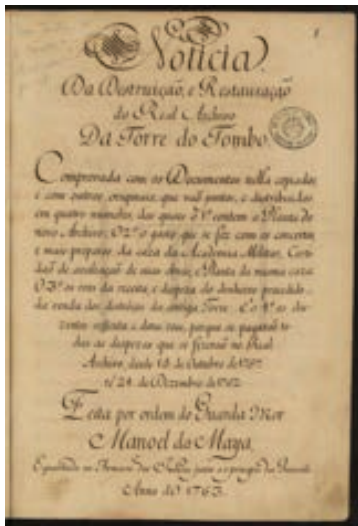 1
Noticia
Da Destruição, e Restauração
do Real Archivo
Da Torre do Tombo.
Comprovada com os Documentos nella copiados
e com outros, originaes, que vaõ juntos, e distribuidos
em quatro maunches, dos quaes o 1º contem a Planta do
novo Archivo; O 2º o gasto que se fez com os concertos
e mais preparos da caza da Academia Militar,
de avaliação de suas obras, e Planta da mesma caza
O 3º os da receita, e despeza do dinheiro procedido
da venda dos da antiga Torre. E o 4º os du-
zentos e porque se pagaraõ to-
das as despezas que se fizeraõ no Real
Archivo, desde de Outubro de 1757
té 24 de Dezembro de 1762
Feita por ordem do Guarda Mor
Manoel da Maya,
E guardada no Armario
Anno de 1763.